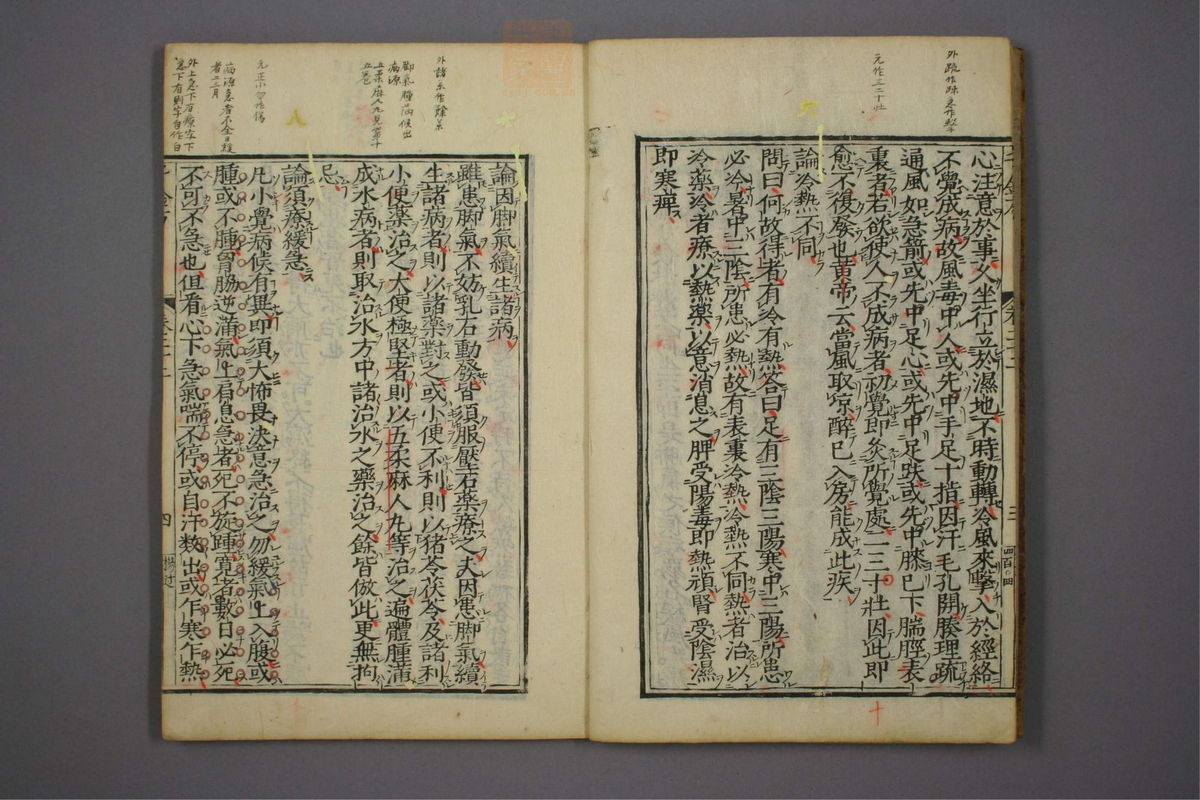 心注意於事久坐行立於濕地不時動轉冷風來擊入於經絡
不覺成病故風毒中人或先中手足十指因汗毛孔開腠理疏
通風如急箭或先中足心或先中足趺或先中膝已下腨脛表
裏者若欲使人不成病者初覺即灸所覺處二三十壯因此即
愈不復發也黃帝云當風取涼醉已入房能成此疾
論冷熱不同
問曰何故得者有冷有熱答曰足有三陰三陽寒中三陽所患
必冷暑中三陰所患必熱故有表裏冷熱冷熱不同熱者治以
冷藥冷者療以熱藥以意消息之脾受陽毒即熱頑腎受陰濕
即寒痺
論因脚氣續生諸病
雖患脚氣不妨乳石動發皆須服壓石藥療之夫因患脚氣續
生諸病者則以諸藥對之或小便不利則以猪苓茯苓及諸利
小便藥治之大便極堅者則以五柔麻人丸等治之遍體腫滿
成水病者則取治水方中諸治水之藥治之餘皆倣此更無拘
忌
論須療緩急
凡小覺病候有異即須大怖畏決意急治之勿緩氣上入腹或
腫或不腫胷脇逆滿氣上肩息急者死不旋踵寬者數日必死
不可不急也但看心下急氣喘不停或自汗数出或乍寒乍熱